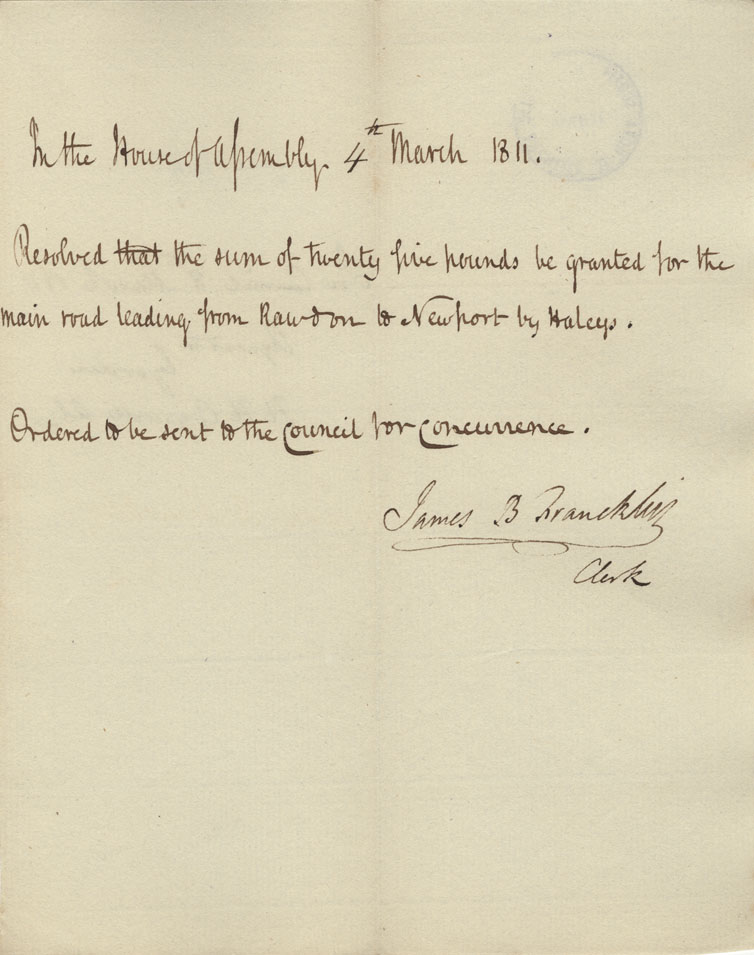 In the House of Assembly 4th March 1811.
Resolved that the sum of twenty five pounds be granted for the
main road leading from Rawdon to Newport by Haleys.
Ordered to be sent to the Council for Concurrence.
James B Francklin
Clerk